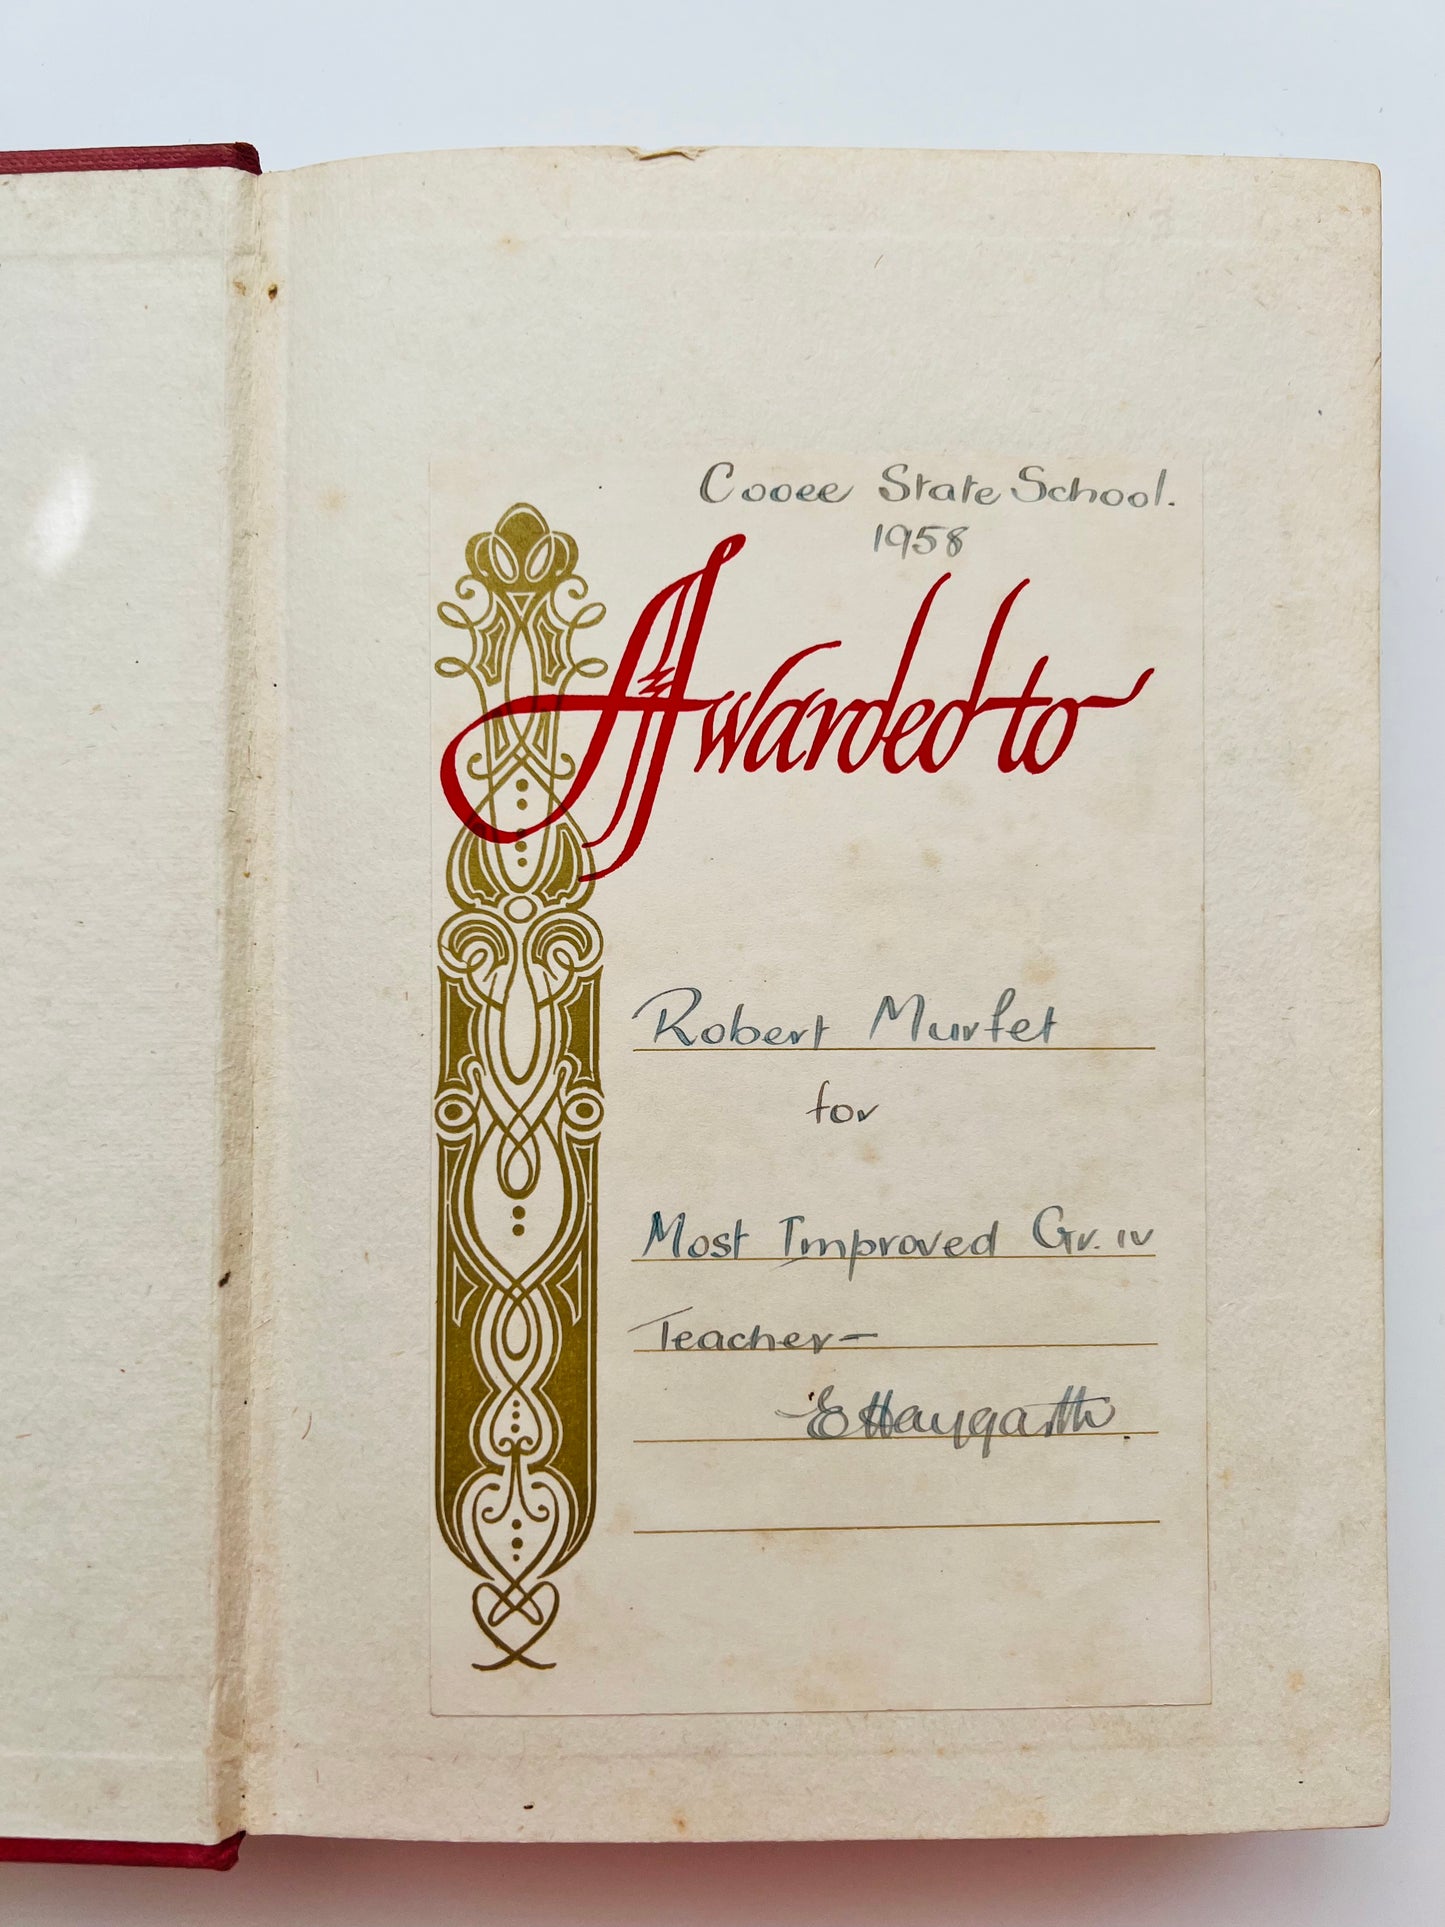 Cooee State School.
1958
Awarded to
Robert Murfet
for
Most Improved Gr. iv
Teacher—
E Haygarth.